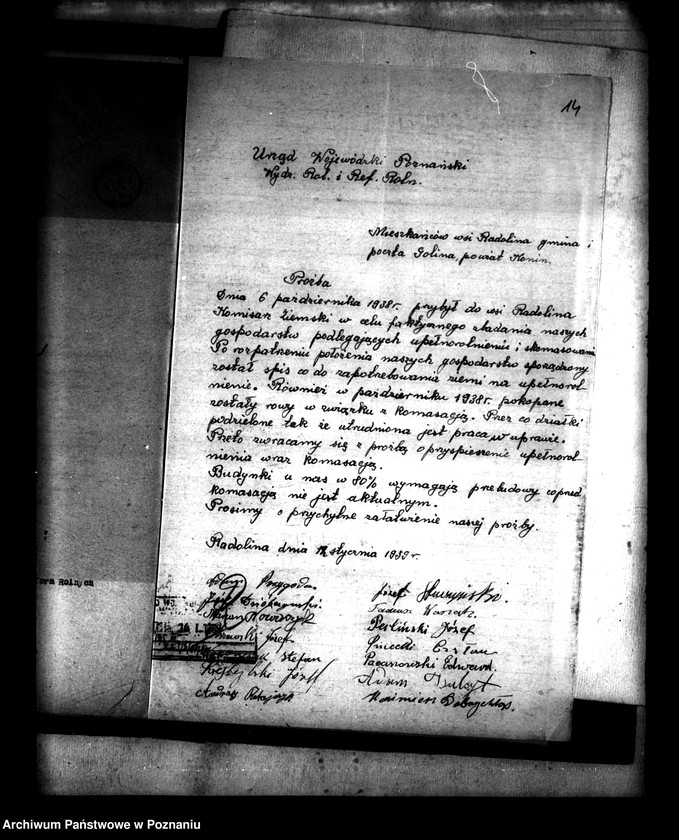 14
Urząd Wojewódzki Poznański
Wydz. Rol. i Ref. Roln.
Mieszkańców wsi Radolina gmina i
poczta Golina, powiat Konin.
Prośba
Dnia 6 października 1938r. przybył do wsi Radolina
Komisarz Ziemski w celu faktycznego zbadania naszych
gospodarstw podlegających upełnorolnieniu i skomasowaniu
Po rozpatrzeniu położenia naszych gospodarstw sporządzony
został spis co do zapotrzebowania ziemi na upełnorol-
nienie. Również w październiku 1938r. pokopane
zostały rowy w związku z komasacją. Przez co działki
podzielone tak że utrudniona jest praca w uprawie.
Przeto zwracamy się z prośbą o przyspieszenie upełnorol-
nienia wraz komasacją.
Budynki u nas w 80% wymagają przebudowy co przed
komasacją nie jest aktualnym.
Prosimy o przychylne załatwienie naszej prośby.
Radolina dnia stycznia 1939 r.
Przygoda.
Józef
Nowaszyk
Tadeusz
Józef
Perliński Józef
Stefan
Pacanowski Edward.
Józef
Adam
Andrzej Ratajczyk
Kazimierz Dobrychłop.
orm Rolnych
Archiwum Państwowe w Poznaniu